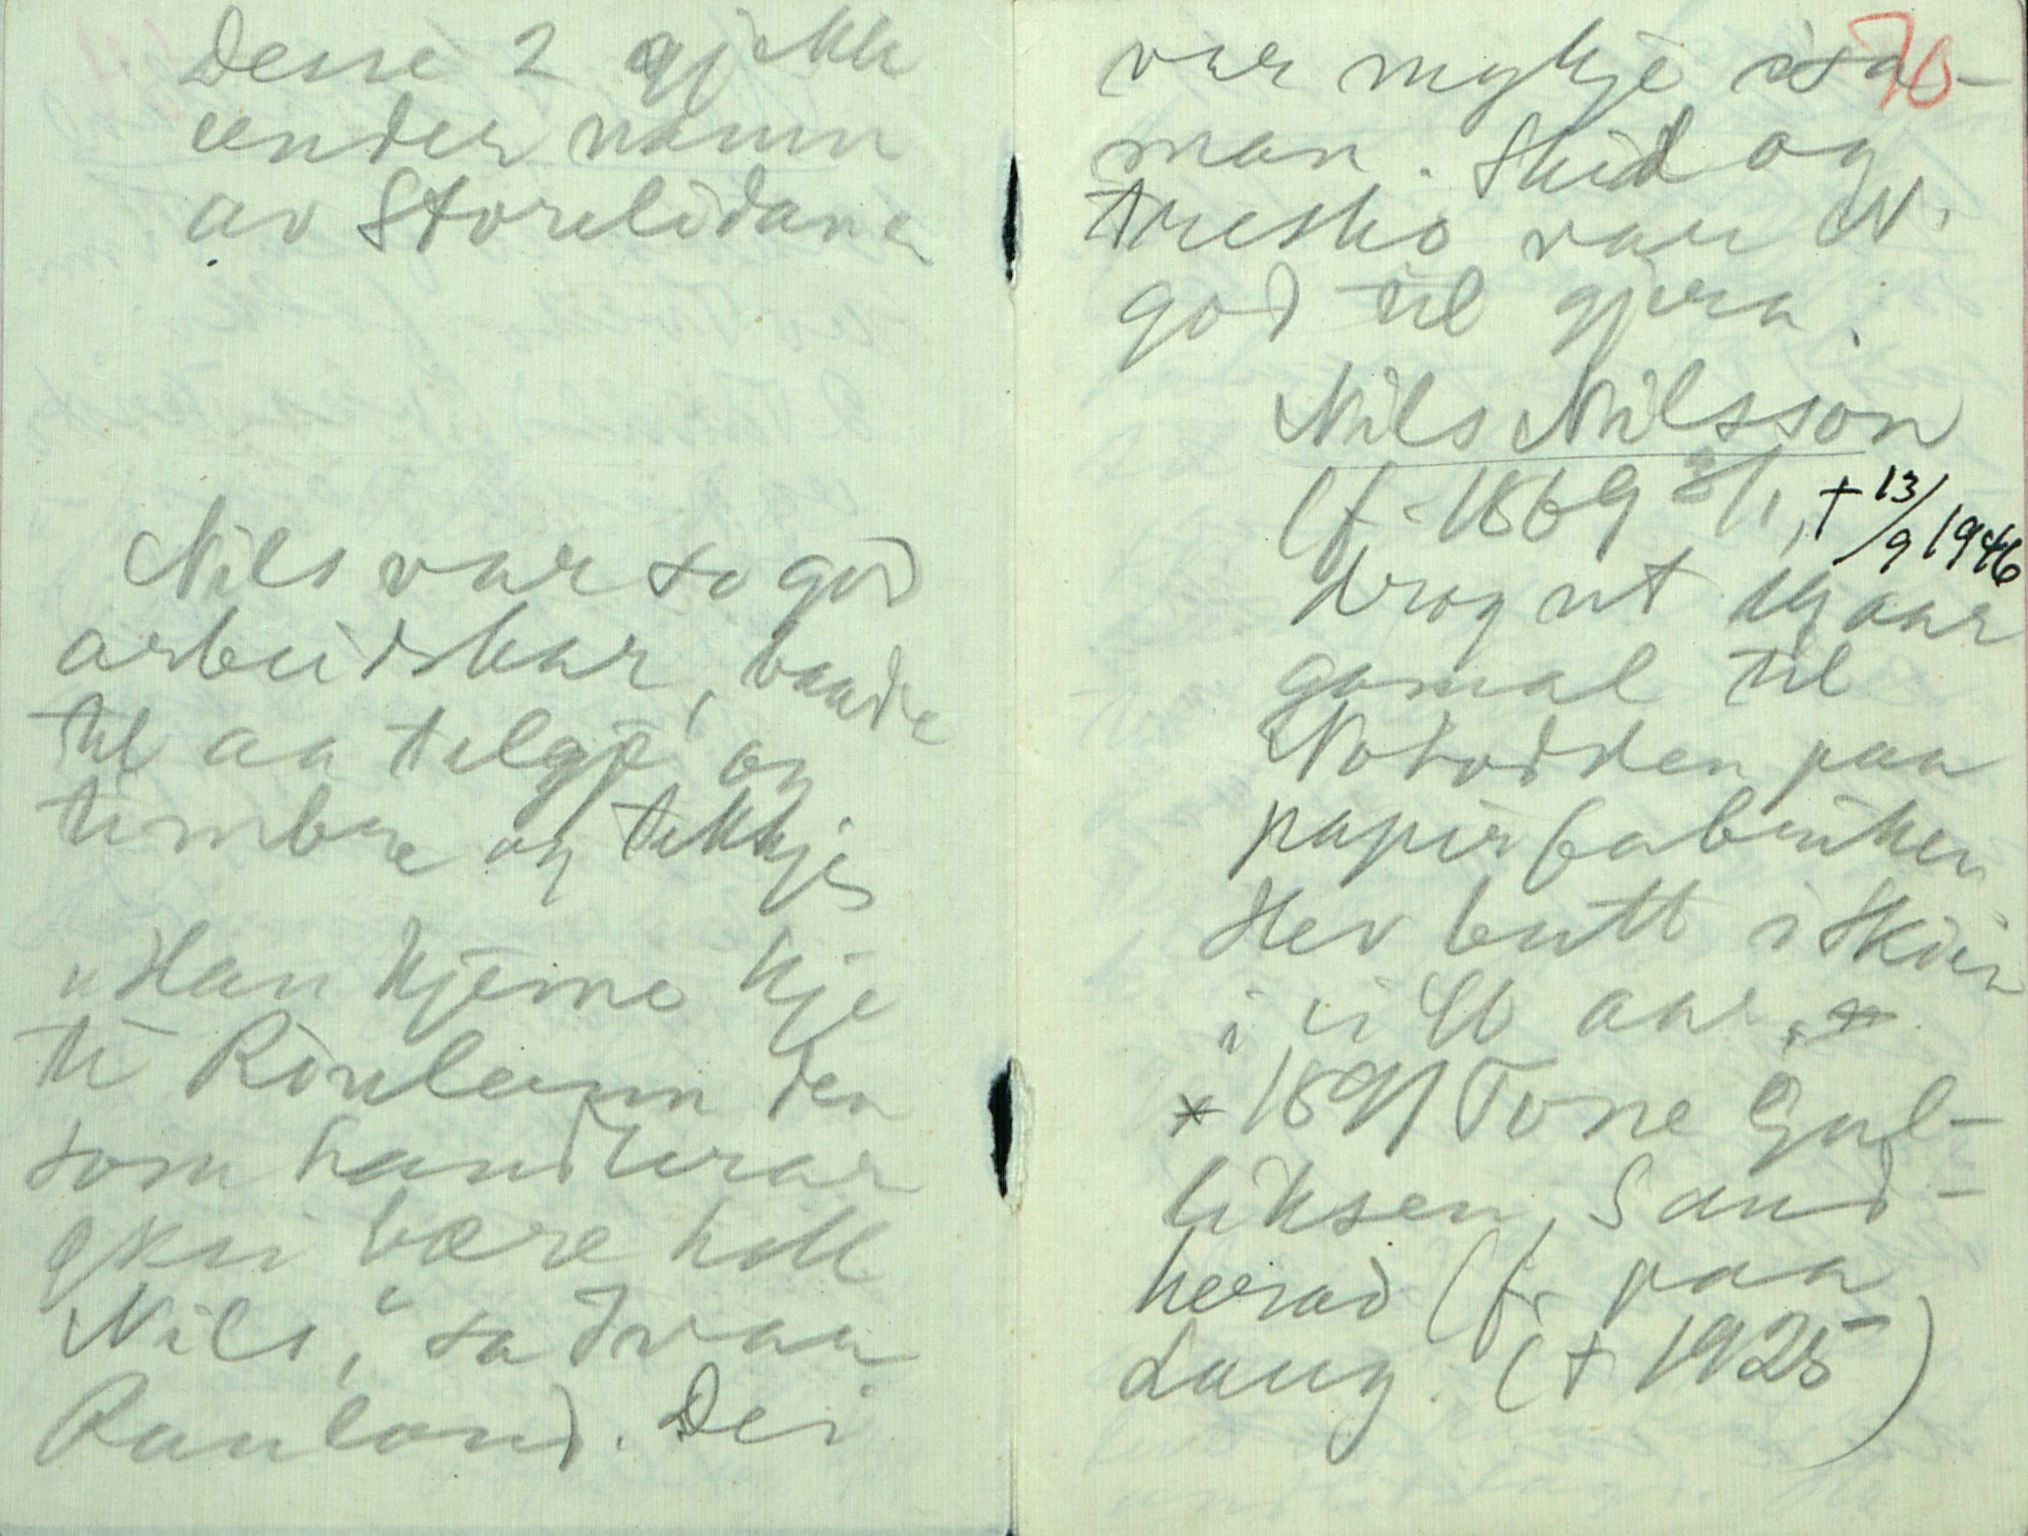 Desse 2 gjekk
under namn
av Storelidane
Nils var so god
arbeidskar, baade
til aa telgje og
timbre og tekkje
"Han kjeme kje
ti Rauleann den
som handterar
øksi bære hell
Nils," sa dvaa
Rauland. Dei
70
var mykje isa-
man. Skid og
tresko var N.
god til gjera.
Nils Nilsson
(f. 1869 3/1, † 13/9 1946
drog ut 19 aar
gamal til
Notodden paa
papirfabriken
Hev butt i Skien
i 46 aar.
* 1891 Tone Gul-
liksen, Sand-
herad (f. paa
Laug. († 1925)